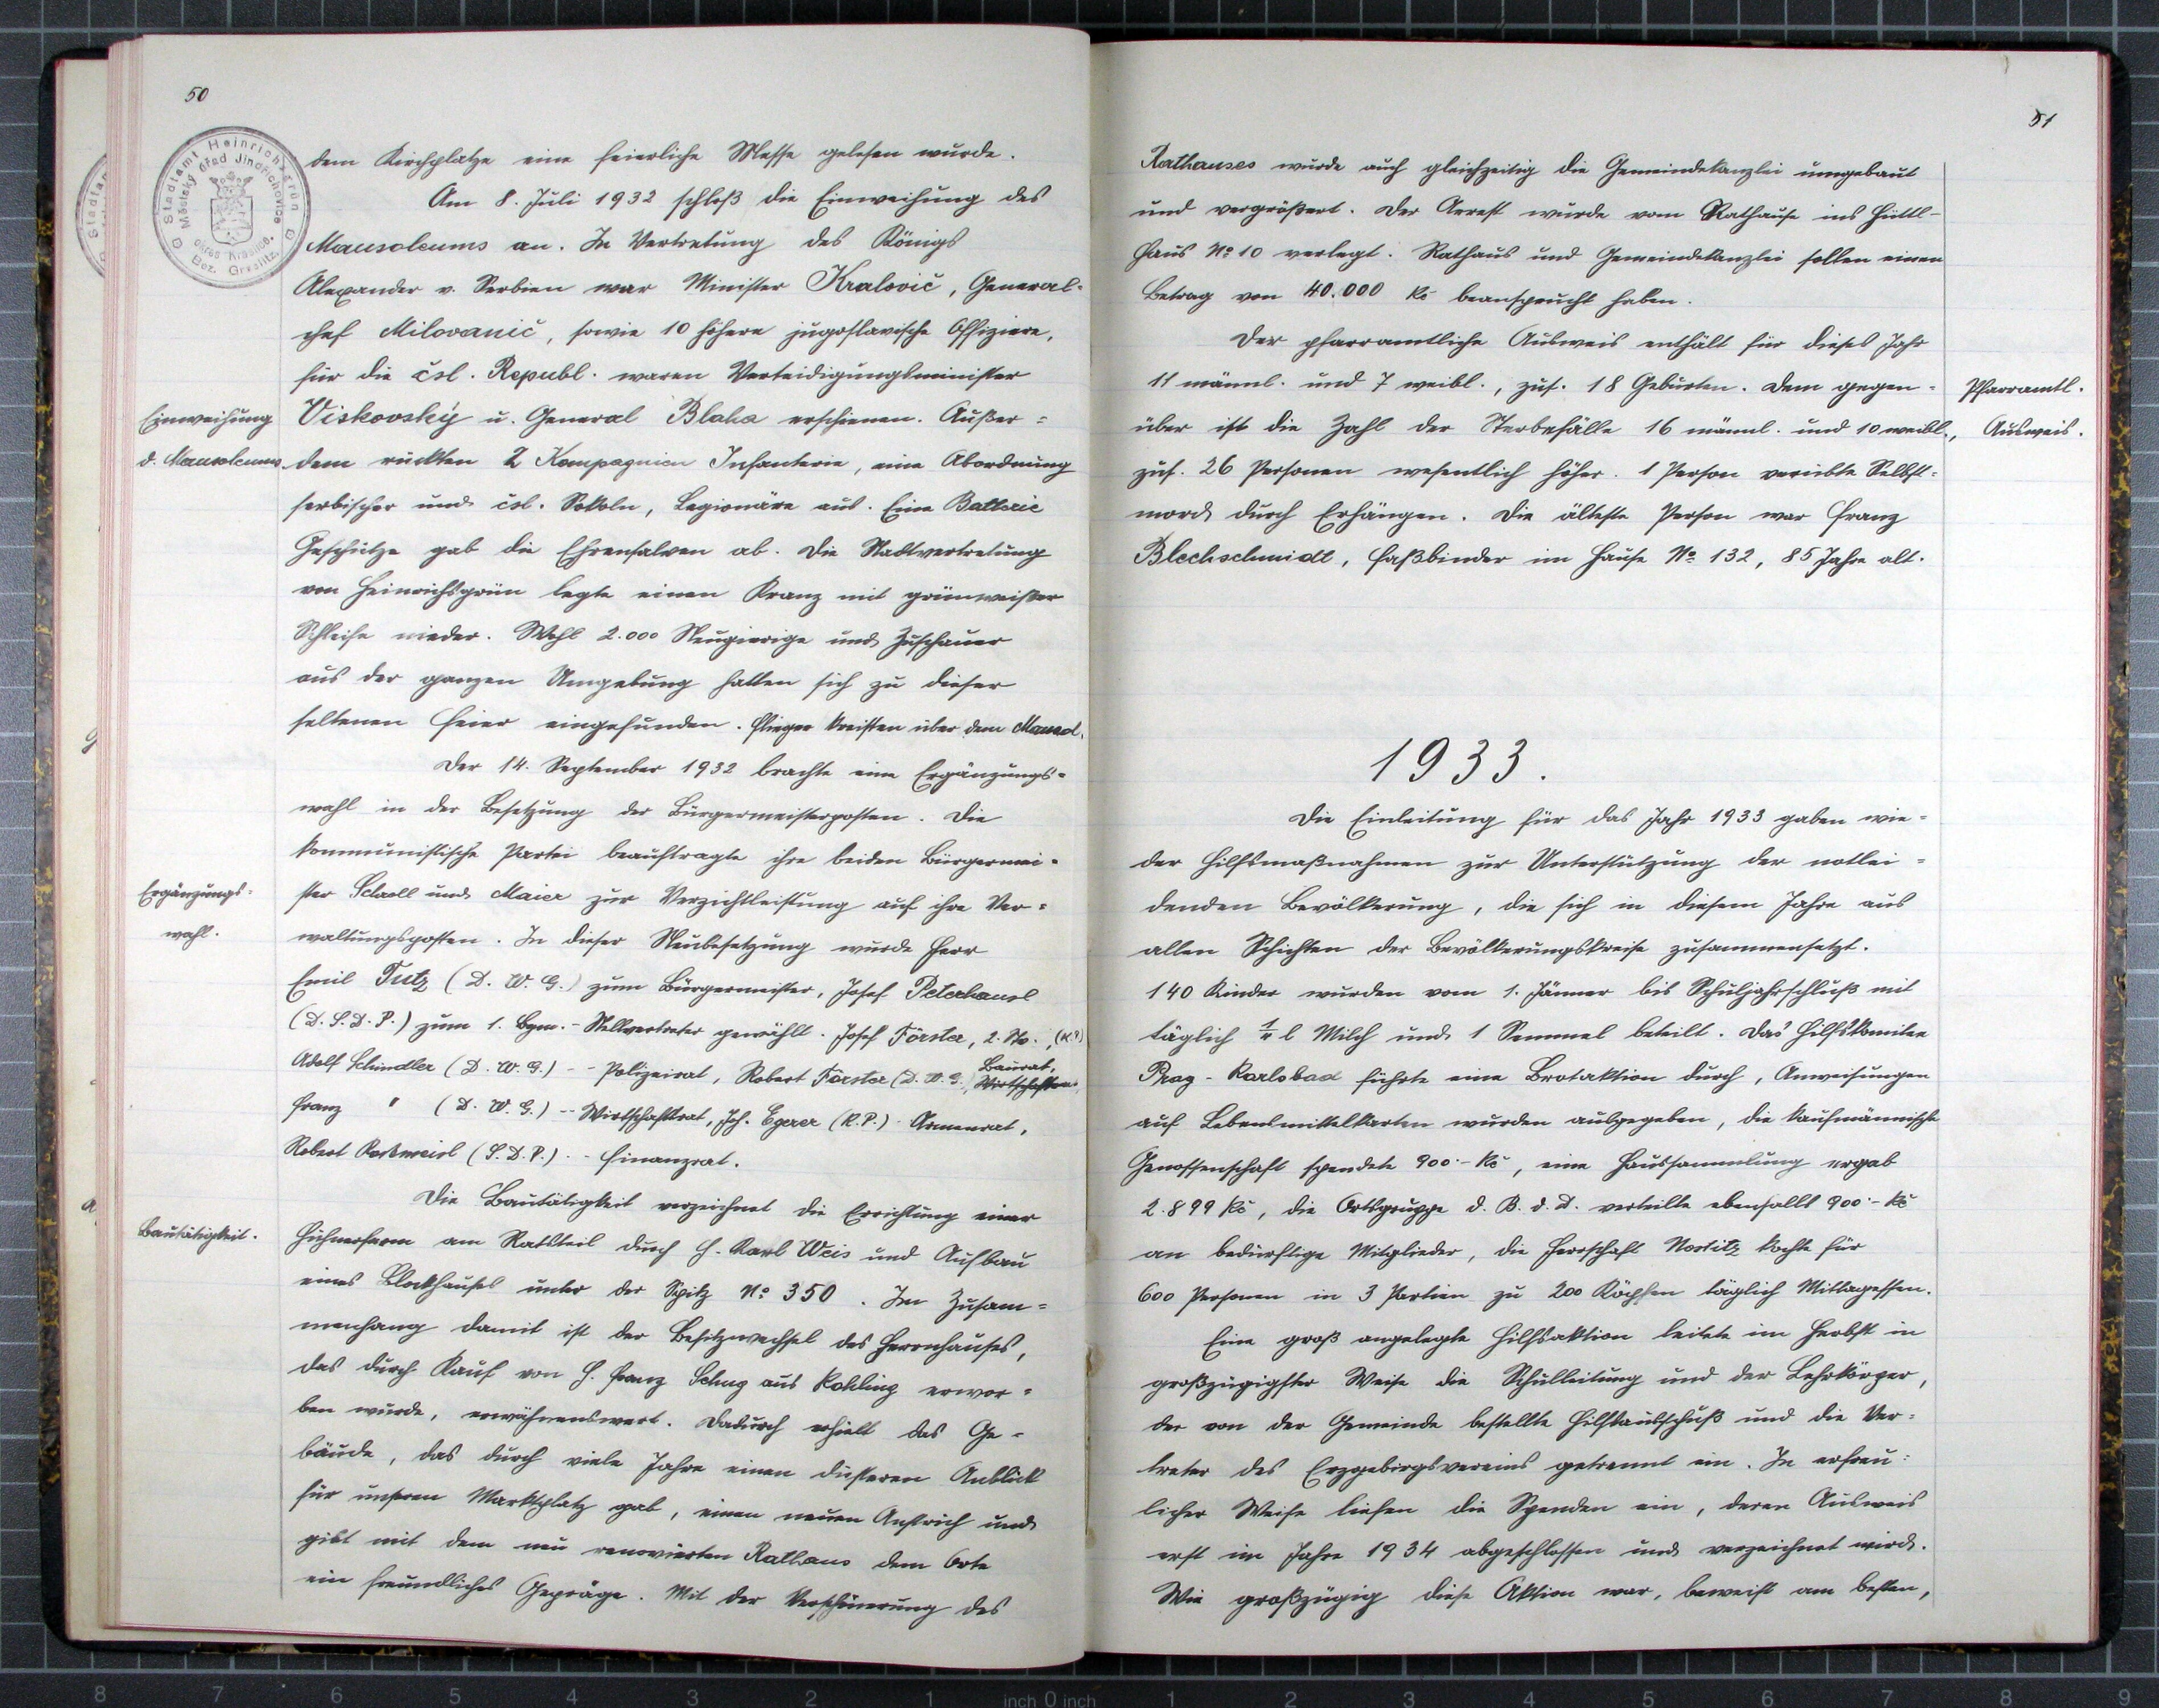 50
Stadtamt Heinrichsgrün
Městský úřad Jindřichovice
okres Kraslice.
Bez. Graslitz
dem Kirchplatze eine feierliche Messe gelesen wurde.
Am 8. Juli 1932 schloß die Einweihung des
Mausoleums an. In Vertretung des Königs
Alexander v. Serbien war Minister Kralovič, General-
chef Milovanič, sowie 10 höhere jugoslavische Offiziere,
für die čsl. Republ. waren Verteidigungsminister
Einweihung
d. Mausoleums
Viskovský u. General Blaha erschienen. Außer-
dem rückten 2 Kompagnien Infanterie, eine Abordnung
serbischer und čsl. Sokoln, Legionäre aus. Eine Batterie
Geschütze gab die Ehrensalven ab. Die Stadtvertretung
von Heinrichsgrün legte einen Kranz mit grünweißer
Schleife nieder. Wohl 2.000 Neugierige und Zuschauer
aus der ganzen Umgebung hatten sich zu dieser
seltenen Feier eingefunden. Flieger kreisten über dem Mausol.
Der 14. September 1932 brachte eine Ergänzungs-
wahl in der Besetzung der Bürgermeisterposten. Die
kommunistische Partei beauftragte ihre beiden Bürgermei-
Ergänzungs-
wahl.
ster Scholl und Maier zur Verzichtleistung auf ihre Ver-
waltungsposten. In dieser Neubesetzung wurde Herr
Emil Tutz (D. W. G.) zum Bürgermeister, Josef Peterhansl
(D. S. D. P.) zum 1. Bgm.-Stellvertreter gewählt. Josef Förster, 2. Stv., (K.P.)
Adolf Schindler (D. W. G.) -- Polizeirat, Robert Förster (D. W. G.) Baurat, Wirtschaftsrat,
Franz " (D. W. G.) -- Wirtschaftsrat, Joh. Egerer (K.P.) Armenrat,
Robert (S. D. P.) -- Finanzrat.
Bautätigkeit.
Die Bautätigkeit verzeichnet die Errichtung einer
Hühnerfarm am Ratsteil durch H. Karl Weis und Aufbau
eines Blockhauses unter der Spitz No 350. Im Zusam-
menhang damit ist der Besitzwechsel des Herrnhauses,
das durch Kauf von H. Franz Schug aus Kohling erwor-
ben wurde, erwähnenswert. Dadurch erhielt das Ge-
bäude, das durch viele Jahre einen düsteren Anblick
für unseren Marktplatz gab, einen neuen Anstrich und
gibt mit dem neu renovierten Rathaus dem Orte
ein freundliches Gepräge. Mit der Verschönerung des
51
Rathauses wurde auch gleichzeitig die Gemeindekanzlei umgebaut
und vergrößert. Der Arrest wurde vom Rathause ins Hüttl-
haus No 10 verlegt. Rathaus und Gemeindekanzlei sollen einen
Betrag von 40.000 Kč beansprucht haben.
Der pfarramtliche Ausweis enthält für dieses Jahr
11 männl. und 7 weibl., zus. 18 Geburten. Dem gegen-
über ist die Zahl der Sterbefälle 16 männl. und 10 weibl.,
Pfarramtl.
Ausweis.
zus. 26 Personen wesentlich höher. 1 Person verübte Selbst-
mord durch Erhängen. Die älteste Person war Franz
Blechschmidt, Faßbinder im Hause No 132, 85 Jahre alt.
1933.
Die Einleitung für das Jahr 1933 gaben wie-
der Hilfsmaßnahmen zur Unterstützung der notlei-
denden Bevölkerung, die sich in diesem Jahre aus
allen Schichten der Bevölkerungskreise zusammensetzt.
140 Kinder wurden vom 1. Jänner bis Schuljahrschluß mit
täglich 1/4 l Milch und 1 Semmel beteilt. Das Hilfskomitee
Prag-Karlsbad führte eine Brotaktion durch, Anweisungen
auf Lebensmittelkarten wurden ausgegeben, die kaufmännische
Genossenschaft spendete 900.- Kč, eine Haussammlung ergab
2.899 Kč, die Ortsgruppe d. B. d. D. verteilte ebenfalls 900.- Kč
an bedürftige Mitglieder, die Herrschaft Nostitz kochte für
600 Personen in 3 Partien zu 200 Köpfen täglich Mittagessen.
Eine groß angelegte Hilfsaktion leitete im Herbst in
großzügigster Weise die Schulleitung und der Lehrkörper,
der von der Gemeinde bestellte Hilfsausschuß und die Ver-
treter des Erzgebirgsvereins getrennt ein. In erfreu-
licher Weise liefen die Spenden ein, deren Ausweis
erst im Jahre 1934 abgeschlossen und verzeichnet wird.
Wie großzügig diese Aktion war, beweist am besten,
8 7 6 5 4 3 2 1 inch 0 inch 1 2 3 4 5 6 7 8 9